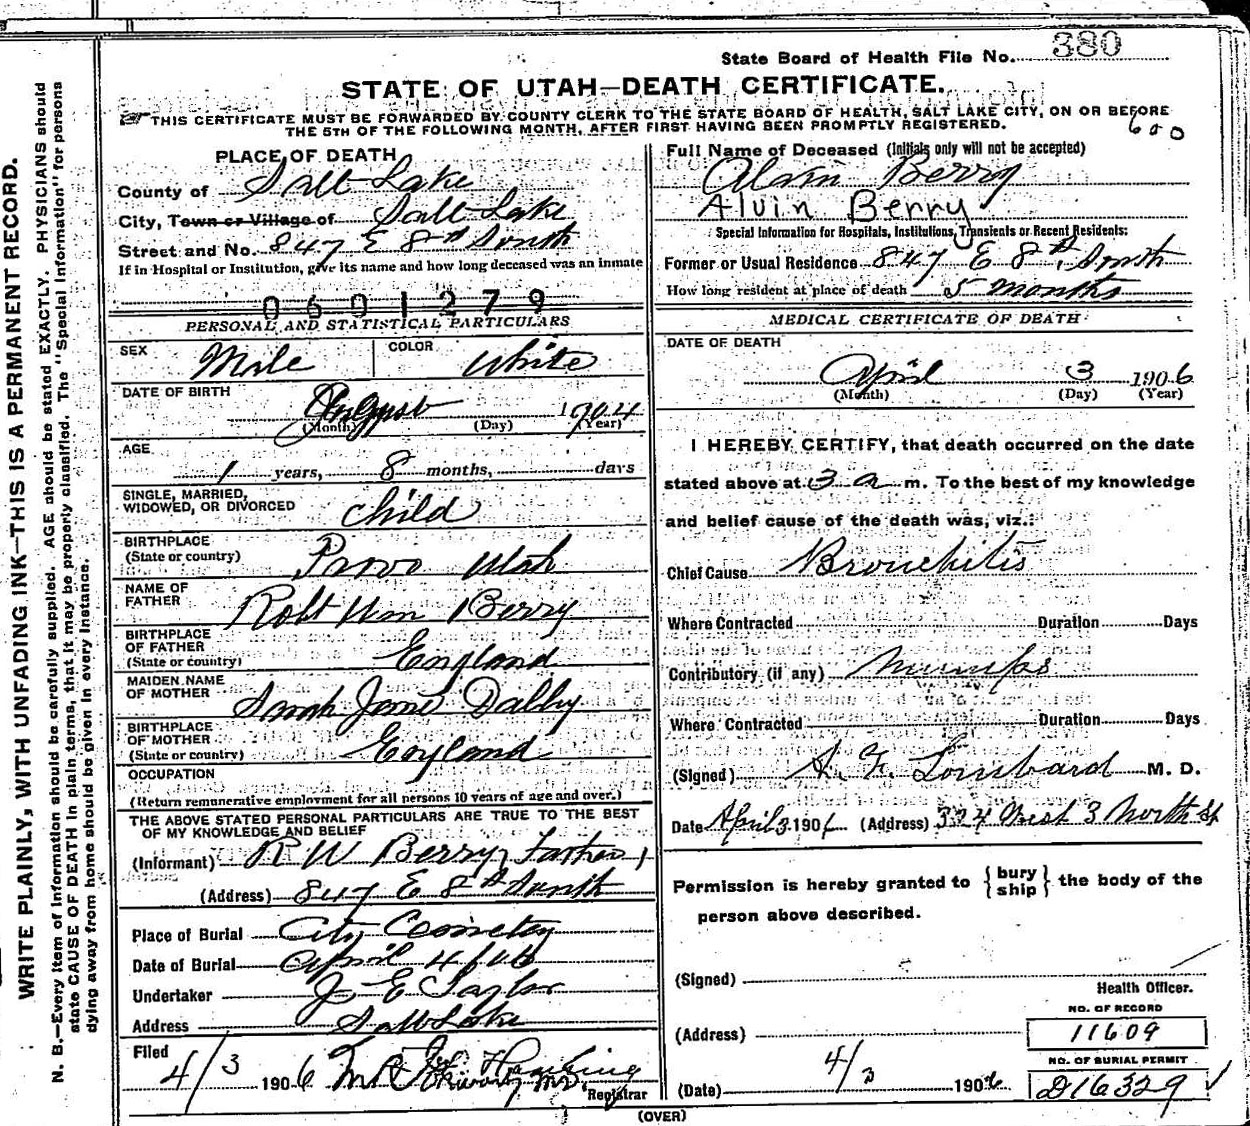 State Board of Health File No. 380
STATE OF UTAH—DEATH CERTIFICATE.
THIS CERTIFICATE MUST BE FORWARDED BY COUNTY CLERK TO THE STATE BOARD OF HEALTH, SALT LAKE CITY, ON OR BEFORE
THE 5TH OF THE FOLLOWING MONTH, AFTER FIRST HAVING BEEN PROMPTLY REGISTERED.
600
WRITE PLAINLY, WITH UNFADING INK—THIS IS A PERMANENT RECORD.
N. B.—Every item of information should be carefully supplied. AGE should be stated EXACTLY. PHYSICIANS should
state CAUSE OF DEATH in plain terms, that it may be properly classified. The "Special Information" for persons
dying away from home should be given in every instance.
PLACE OF DEATH
County of Salt Lake
City, Town or Village of Salt Lake
Street and No. 847 E 8th South
If in Hospital or Institution, give its name and how long deceased was an inmate
0601279
PERSONAL AND STATISTICAL PARTICULARS
SEX Male COLOR White
DATE OF BIRTH August 1904
(Month) (Day) (Year)
AGE
1 years, 8 months, days
SINGLE, MARRIED,
WIDOWED, OR DIVORCED child
BIRTHPLACE
(State or country) Provo Utah
NAME OF
FATHER Robt Wm Berry
BIRTHPLACE
OF FATHER
(State or country) England
MAIDEN NAME
OF MOTHER Sarah Jane Dalby
BIRTHPLACE
OF MOTHER
(State or country) England
OCCUPATION
(Return remunerative employment for all persons 10 years of age and over.)
THE ABOVE STATED PERSONAL PARTICULARS ARE TRUE TO THE BEST
OF MY KNOWLEDGE AND BELIEF
(Informant) R W Berry, Father
(Address) 847 E 8th South
Place of Burial City Cemetery
Date of Burial April 4/06
Undertaker J E Taylor
Address Salt Lake
Filed
4/3 1906
Registrar
Full Name of Deceased (Initials only will not be accepted)
Alvin Berry
Alvin Berry
Special Information for Hospitals, Institutions, Transients or Recent Residents:
Former or Usual Residence 847 E 8th South
How long resident at place of death 5 months
MEDICAL CERTIFICATE OF DEATH
DATE OF DEATH
April 3 1906
(Month) (Day) (Year)
I HEREBY CERTIFY, that death occurred on the date
stated above at 3 a m. To the best of my knowledge
and belief cause of the death was, viz.:
Chief Cause Bronchitis
Where Contracted Duration Days
Contributory (if any) Mumps
Where Contracted Duration Days
(Signed) Lombard M. D.
Date April 3 190 (Address) 324 West 3 North St
Permission is hereby granted to {bury ship} the body of the
person above described.
(Signed)
Health Officer.
NO. OF RECORD
(Address) 11609
NO. OF BURIAL PERMIT
(Date) 4/3 1906 D16329
(OVER)